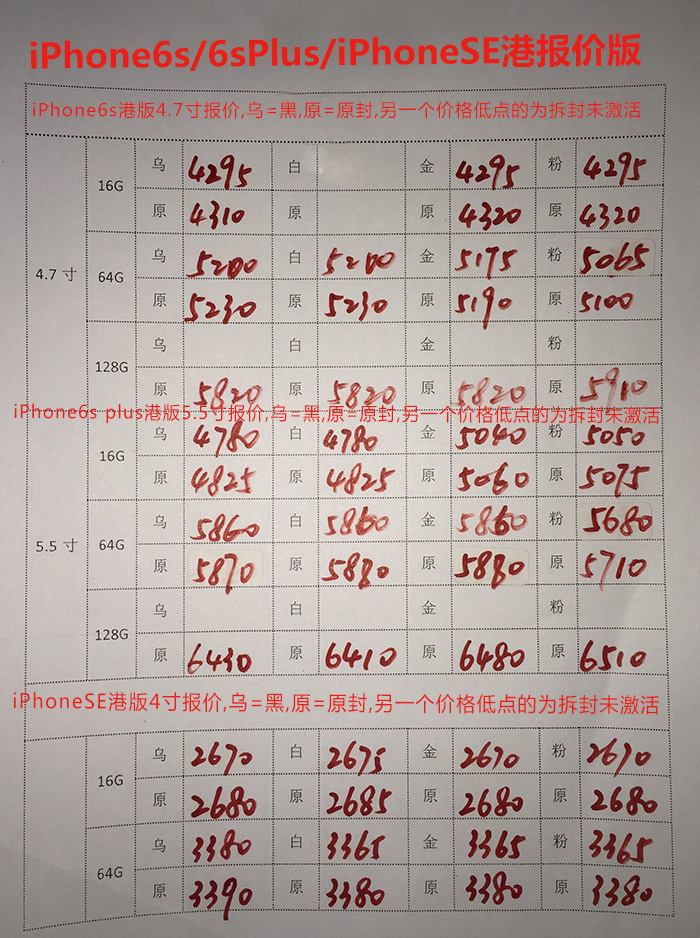 iPhone6s/6sPlus/iPhoneSE港报价版
iPhone6s港版4.7寸报价,乌=黑,原=原封,另一个价格低点的为拆封未激活
4.7 寸 16G 乌 4295 白 金 4295 粉 4295
原 4310 原 原 4320 原 4320
64G 乌 5200 白 5200 金 5175 粉 5065
原 5230 原 5230 原 5190 原 5100
128G 乌 白 金 粉
原 5820 原 5820 原 5820 原 5910
iPhone6s plus港版5.5寸报价,乌=黑,原=原封,另一个价格低点的为拆封未激活
5.5 寸 16G 乌 4780 白 4780 金 5040 粉 5050
原 4825 原 4825 原 5060 原 5075
64G 乌 5860 白 5860 金 5860 粉 5680
原 5870 原 5880 原 5880 原 5710
128G 乌 白 金 粉
原 6430 原 6410 原 6480 原 6510
iPhoneSE港版4寸报价,乌=黑,原=原封,另一个价格低点的为拆封未激活
16G 乌 2670 白 2675 金 2670 粉 2670
原 2680 原 2685 原 2680 原 2680
64G 乌 3380 白 3365 金 3365 粉 3365
原 3390 原 3380 原 3380 原 3380